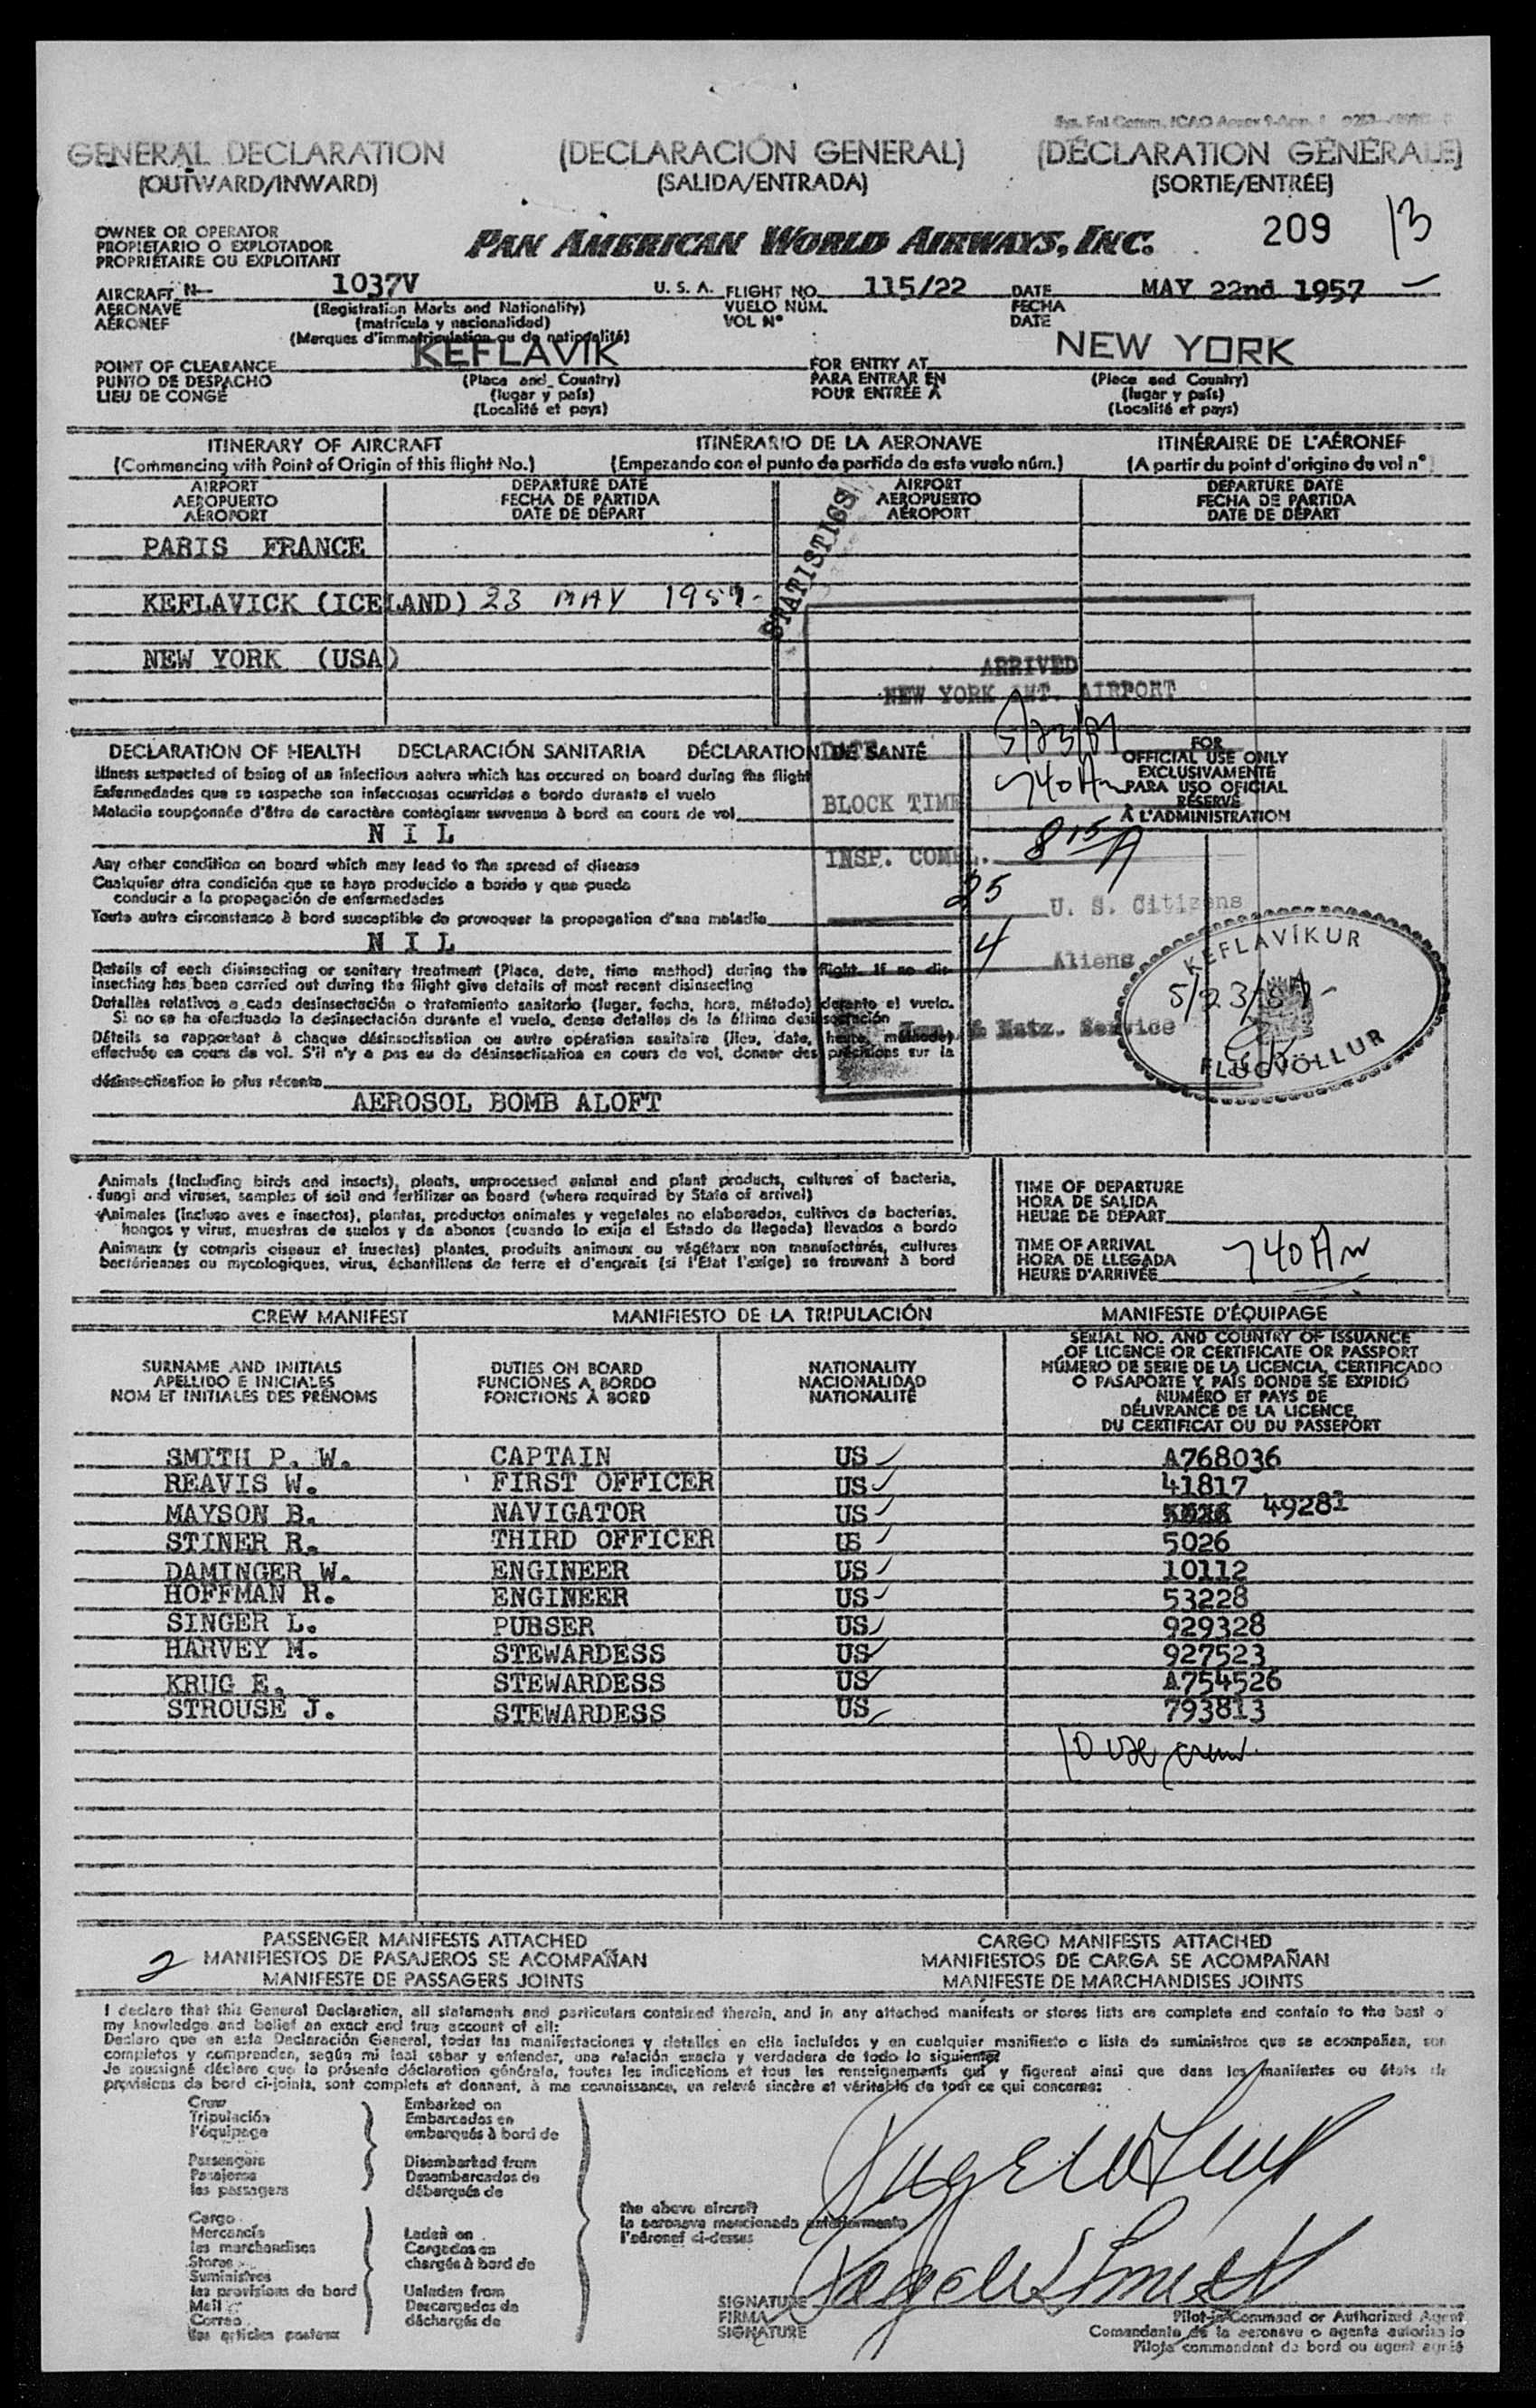 GENERAL DECLARATION (DECLARACIÓN GENERAL) (DÉCLARATION GÉNÉRALE)
(OUTWARD/INWARD) (SALIDA/ENTRADA) (SORTIE/ENTRÉE)
209 13
OWNER OR OPERATOR
PROPIETARIO O EXPLOTADOR
PROPRIÉTAIRE OU EXPLOITANT
PAN AMERICAN WORLD AIRWAYS, INC.
AIRCRAFT N- 1037V U. S. A. FLIGHT NO. 115/22 DATE MAY 22nd 1957
AERONAVE (Registration Marks and Nationality) VUELO NÚM. FECHA
AÉRONEF (matrícula y nacionalidad) VOL Nº DATE
(Marques d'immatriculation ou de nationalité)
POINT OF CLEARANCE KEFLAVIK FOR ENTRY AT NEW YORK
PUNTO DE DESPACHO (Place and Country) PARA ENTRAR EN (Place and Country)
LIEU DE CONGÉ (lugar y país) POUR ENTRÉE À (lugar y país)
(Localité et pays) (Localité et pays)
ITINERARY OF AIRCRAFT ITINERARIO DE LA AERONAVE ITINÉRAIRE DE L'AÉRONEF
(Commencing with Point of Origin of this flight No.) (Empezando con el punto de partida de este vuelo núm.) (A partir du point d'origine du vol nº)
AIRPORT DEPARTURE DATE AIRPORT DEPARTURE DATE
AEROPUERTO FECHA DE PARTIDA AEROPUERTO FECHA DE PARTIDA
AÉROPORT DATE DE DÉPART AÉROPORT DATE DE DÉPART
PARIS FRANCE
KEFLAVICK (ICELAND) 23 MAY 1957-
NEW YORK (USA)
STATISTICS
ARRIVED
NEW YORK INT. AIRPORT
DATE 5/23/57
BLOCK TIME 740 Am
INSP. COMPL. 815 A
25 U. S. Citizens
4 Aliens
Imm. & Natz. Service
FOR
OFFICIAL USE ONLY
EXCLUSIVAMENTE
PARA USO OFICIAL
RÉSERVÉ
À L'ADMINISTRATION
KEFLAVÍKUR
5/23/57-
FLUGVÖLLUR
DECLARATION OF HEALTH DECLARACIÓN SANITARIA DÉCLARATION DE SANTÉ
Illness suspected of being of an infectious nature which has occured on board during the flight
Enfermedades que se sospecha son infecciosas ocurridas a bordo durante el vuelo
Maladie soupçonnée d'être de caractère contagieux survenue à bord en cours de vol
N I L
Any other condition on board which may lead to the spread of disease
Cualquier otra condición que se haya producido a bordo y que pueda
conducir a la propagación de enfermedades
Toute autre circonstance à bord susceptible de provoquer la propagation d'une maladie
N I L
Details of each disinsecting or sanitary treatment (Place, date, time method) during the flight. If no dis-
insecting has been carried out during the flight give details of most recent disinsecting
Detalles relativos a cada desinsectación o tratamiento sanitario (lugar, fecha, hora, método) durante el vuelo.
Si no se ha efectuado la desinsectación durante el vuelo, dense detalles de la última desinsectación
Détails se rapportant à chaque désinsectisation ou autre opération sanitaire (lieu, date, heure, méthode)
effectuée en cours de vol. S'il n'y a pas eu de désinsectisation en cours de vol, donner des précisions sur la
désinsectisation la plus récente
AEROSOL BOMB ALOFT
Animals (Including birds and insects), plants, unprocessed animal and plant products, cultures of bacteria,
fungi and viruses, samples of soil and fertilizer on board (where required by State of arrival)
Animales (incluso aves e insectos), plantas, productos animales y vegetales no elaborados, cultivos de bacterias,
hongos y virus, muestras de suelos y de abonos (cuando lo exija el Estado de llegada) llevados a bordo
Animaux (y compris oiseaux et insectes) plantes, produits animaux ou végétaux non manufacturés, cultures
bactériennes ou mycologiques, virus, échantillons de terre et d'engrais (si l'État l'exige) se trouvant à bord
TIME OF DEPARTURE
HORA DE SALIDA
HEURE DE DÉPART
TIME OF ARRIVAL
HORA DE LLEGADA 740 Am
HEURE D'ARRIVÉE
CREW MANIFEST MANIFIESTO DE LA TRIPULACIÓN MANIFESTE D'ÉQUIPAGE
SURNAME AND INITIALS DUTIES ON BOARD NATIONALITY
APELLIDO E INICIALES FUNCIONES A BORDO NACIONALIDAD
NOM ET INITIALES DES PRÉNOMS FONCTIONS À BORD NATIONALITÉ
SERIAL NO. AND COUNTRY OF ISSUANCE
OF LICENCE OR CERTIFICATE OR PASSPORT
NÚMERO DE SERIE DE LA LICENCIA, CERTIFICADO
O PASAPORTE Y PAÍS DONDE SE EXPIDIÓ
NUMÉRO ET PAYS DE
DÉLIVRANCE DE LA LICENCE,
DU CERTIFICAT OU DU PASSEPORT
SMITH P. W. CAPTAIN US A768036
REAVIS W. FIRST OFFICER US 41817
MAYSON B. NAVIGATOR US 49281
STINER R. THIRD OFFICER US 5026
DAMINGER W. ENGINEER US 10112
HOFFMAN R. ENGINEER US 53228
SINGER L. PURSER US 929328
HARVEY M. STEWARDESS US 927523
KRUG E. STEWARDESS US A754526
STROUSE J. STEWARDESS US 793813
10 use crew.
PASSENGER MANIFESTS ATTACHED CARGO MANIFESTS ATTACHED
2 MANIFIESTOS DE PASAJEROS SE ACOMPAÑAN MANIFIESTOS DE CARGA SE ACOMPAÑAN
MANIFESTE DE PASSAGERS JOINTS MANIFESTE DE MARCHANDISES JOINTS
I declare that this General Declaration, all statements and particulars contained therein, and in any attached manifests or stores lists are complete and contain to the best o
my knowledge and belief an exact and true account of all:
Declaro que en esta Declaración General, todas las manifestaciones y detalles en ella incluídos y en cualquier manifiesto o lista de suministros que se acompañan, son
completos y comprenden, según mi leal saber y entender, una relación exacta y verdadera de todo lo siguiente:
Je soussigné déclare que la présente déclaration générale, toutes les indications et tous les renseignements qui y figurent ainsi que dans les manifestes ou états de
provisions de bord ci-joints, sont complets et donnent, à ma connaissance, un relevé sincère et véritable de tout ce qui concerne:
Crew Embarked on
Tripulación Embarcados en
l'équipage embarqués à bord de
Passengers Disembarked from
Pasajeros Desembarcados de
les passagers débarqués de
Cargo
Mercancía Laded on
les marchandises Cargados en
Stores chargés à bord de
Suministros
les provisions de bord Unladen from
Mail Descargados de
Correo déchargés de
les articles postaux
the above aircraft
la aeronave mencionada anteriormente
l'aéronef ci-dessus
SIGNATURE
FIRMA
SIGNATURE
Pilot-in-Command or Authorized Agent
Comandante de la aeronave o agente autorizado
Pilote commandant de bord ou agent agréé